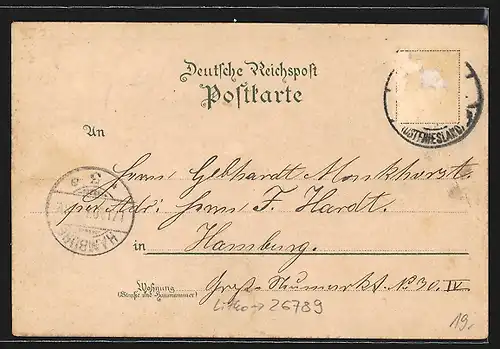 Deutsche Reichspost
Postkarte
(OSTFRIESLAND)
An
Herrn Gebhardt Monkhorst
per Adr. Herrn F. Hardt.
in Hamburg.
HAMBURG
Wohnung
(Straße und Hausnummer)
Groß-Neumarkt. No 30. IV
Litho → 26789
19.